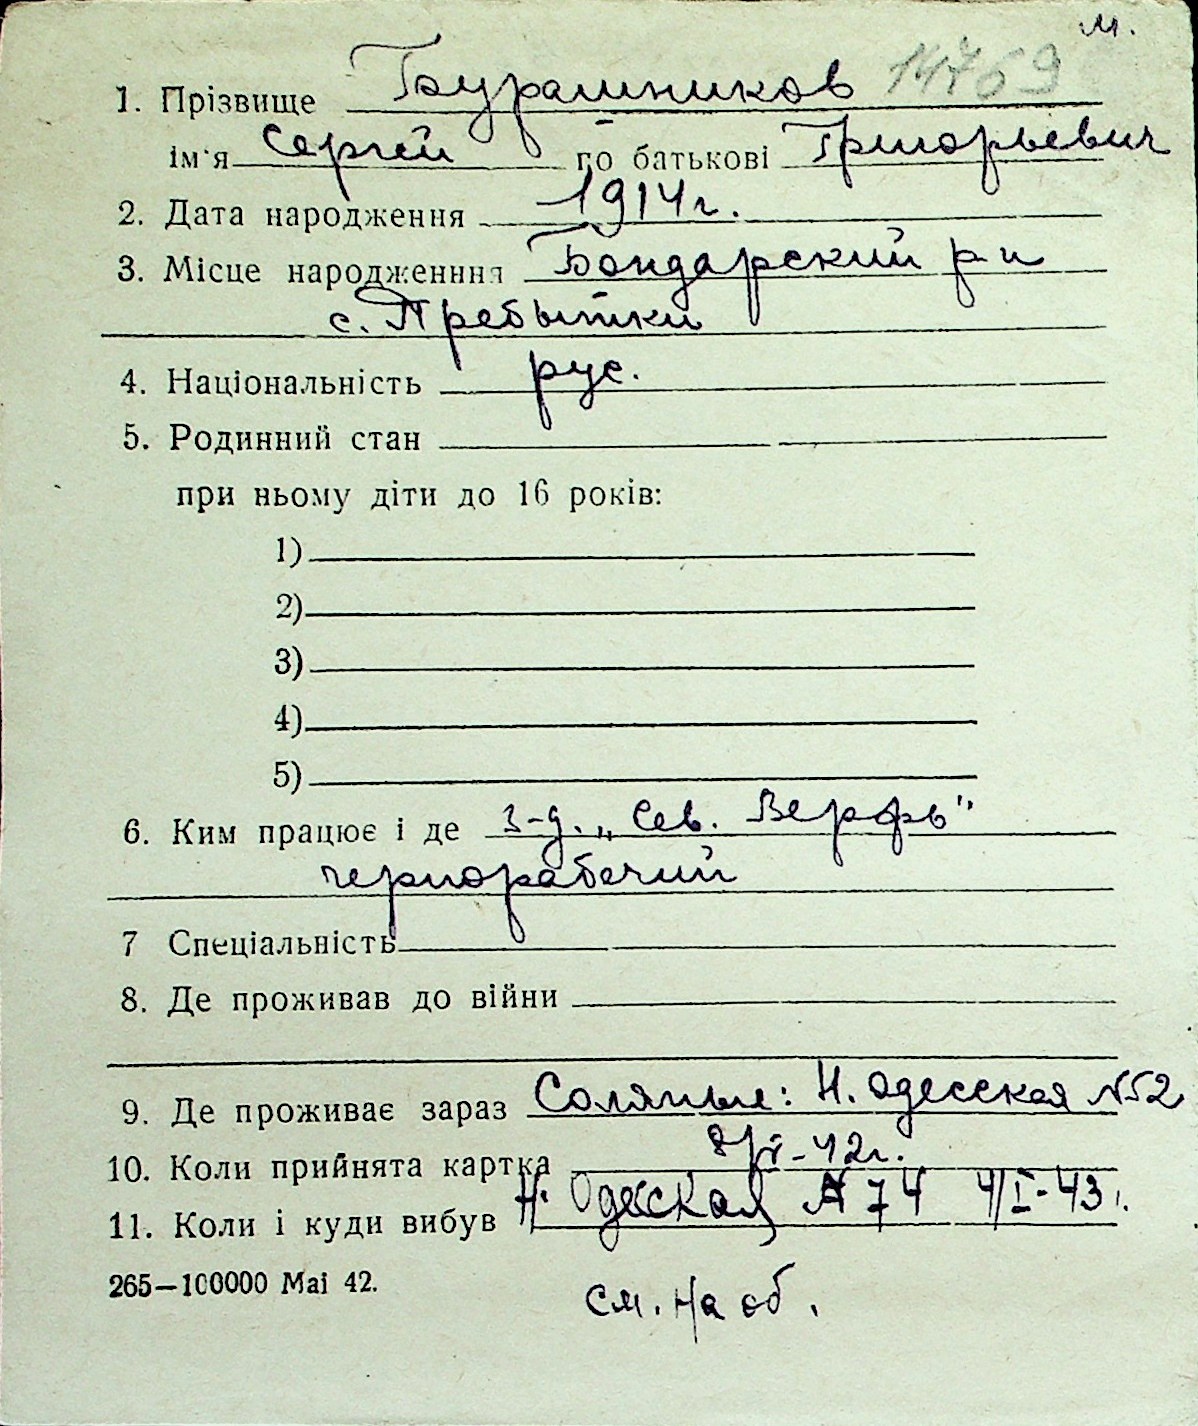 м.
1. Прізвище Бурашников 14769
ім'я Сергей по батькові Григорьевич
2. Дата народження 1914 г.
3. Місце народженння Бондарский р-н
с. Пребытки
4. Національність рус.
5. Родинний стан
при ньому діти до 16 років:
1)
2)
3)
4)
5)
6. Ким працює і де з-д. „Сев. Верфь"
чернорабочий
7 Спеціальність
8. Де проживав до війни
9. Де проживає зараз Соляные: Н. Одесская №52
10. Коли прийнята картка 8/V-42г.
11. Коли і куди вибув Н. Одесская № 74 4/I-43г.
265—100000 Mai 42.
см. на об.